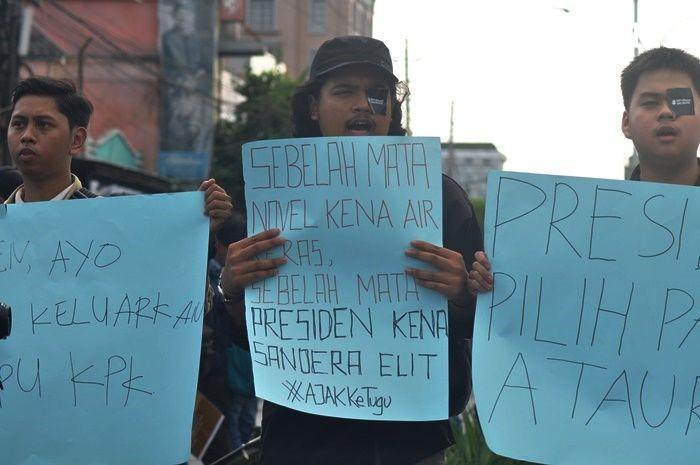 EM, AYO
KELUARKAN
PU KPK
SEBELAH MATA
NOVEL KENA AIR
KERAS,
SEBELAH MATA
PRESIDEN KENA
SANDERA ELIT
#AJAKKeTugu
PRESI
PILIH PA
A TAU